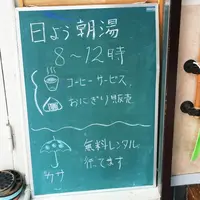 日よう朝湯
8〜12時
コーヒーサービス
おにぎり販売
無料レンタル
行ってます
カサ